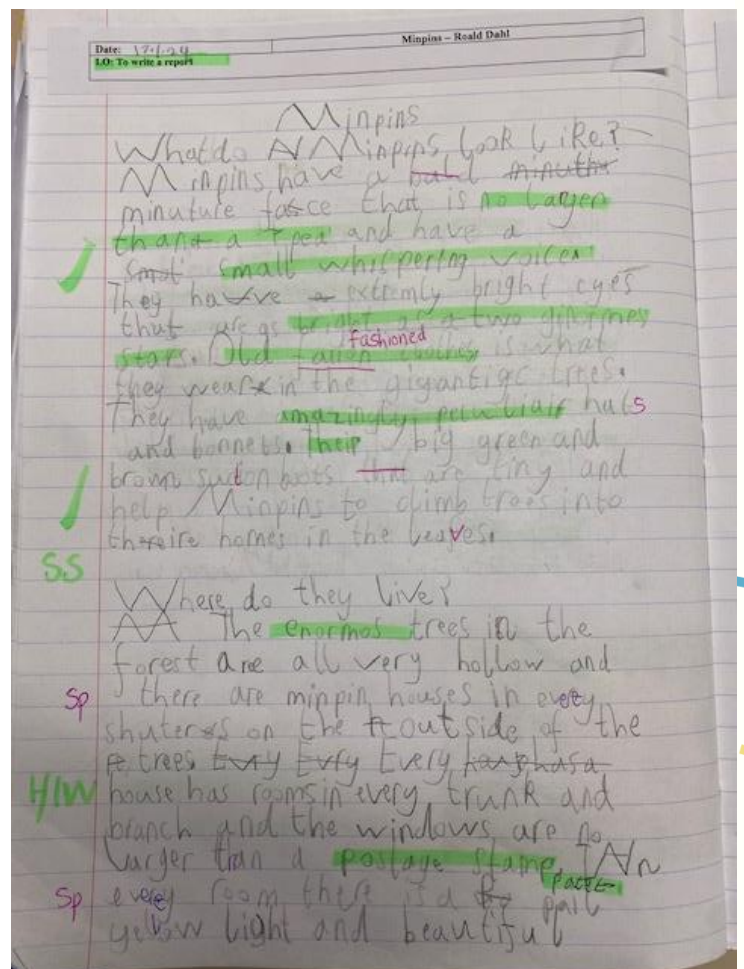 Date: 17.1.24 Minpins – Roald Dahl
LO: To write a report
Minpins
What do Minpins look like?
Minpins have a minuth
minuture face that is no larger
than a pea and have a
Smal small whispering voices.
They have a extremly bright eyes
that are as bright as a two
stars. Old fashioned clothes is what
they wear in the gigantic trees.
They have amazingly peculiair hats
and bonnets. Their big green and
brown suction boots that are tiny and
help Minpins to climb trees into
there homes in the leaves.
SS
Where do they live?
The enormos trees in the
forest are all very hollow and
Sp there are minpin houses in every
shuters on the outside of the
trees Evry Evry Every has a
H/W house has rooms in every trunk and
branch and the windows are no
larger than a postage stamp. In
pale
Sp every room there is a pail
yellow light and beautiful